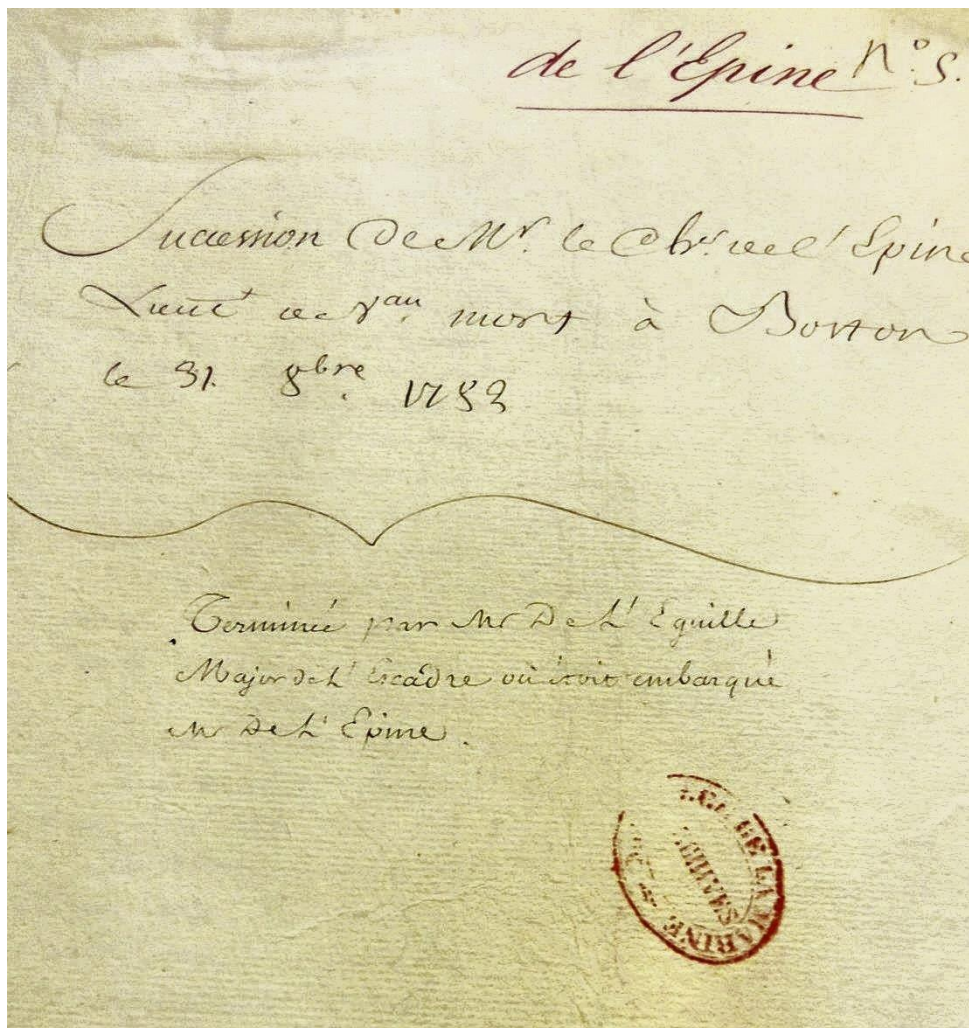 de l'Epine n° 5.
Succession de Mr. le Chr. de l'Epine
Lieut de Vau. mort à Boston
le 31. 8bre. 1782
Terminée par Mr De L'Eguille
Major de L'Escadre où étoit embarqué
Mr De L'Epine.
DE LA MARINE
ARCHIVES